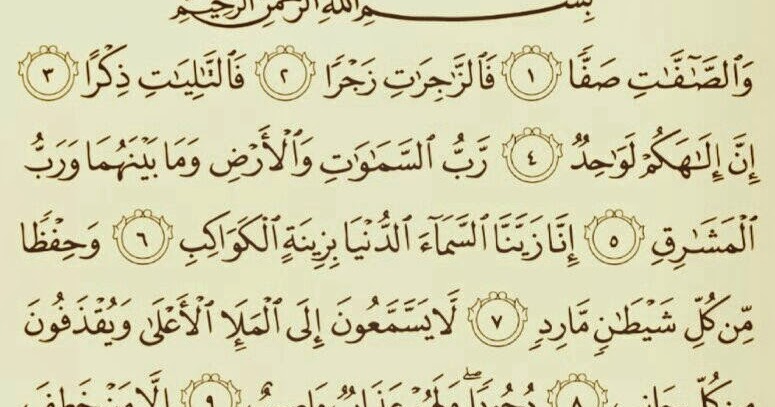 بِسْمِ ٱللَّهِ ٱلرَّحْمَٰنِ ٱلرَّحِيمِ
وَٱلصَّٰٓفَّٰتِ صَفًّا ١ فَٱلزَّٰجِرَٰتِ زَجْرًا ٢ فَٱلتَّٰلِيَٰتِ ذِكْرًا ٣
إِنَّ إِلَٰهَكُمْ لَوَٰحِدٌ ٤ رَّبُّ ٱلسَّمَٰوَٰتِ وَٱلْأَرْضِ وَمَا بَيْنَهُمَا وَرَبُّ
ٱلْمَشَٰرِقِ ٥ إِنَّا زَيَّنَّا ٱلسَّمَآءَ ٱلدُّنْيَا بِزِينَةٍ ٱلْكَوَاكِبِ ٦ وَحِفْظًا
مِّن كُلِّ شَيْطَٰنٍ مَّارِدٍ ٧ لَّا يَسَّمَّعُونَ إِلَى ٱلْمَلَإِ ٱلْأَعْلَىٰ وَيُقْذَفُونَ
مِن كُلِّ جَانِبٍ ٨ دُحُورًا ۖ وَلَهُمْ عَذَابٌ وَاصِبٌ ٩ إِلَّا مَنْ خَطِفَ